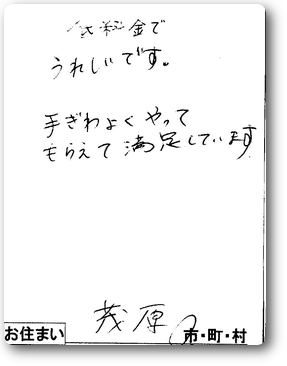 低料金で
うれしいです。
手ぎわよくやって
もらえて満足しています
お住まい 茂原 市・町・村